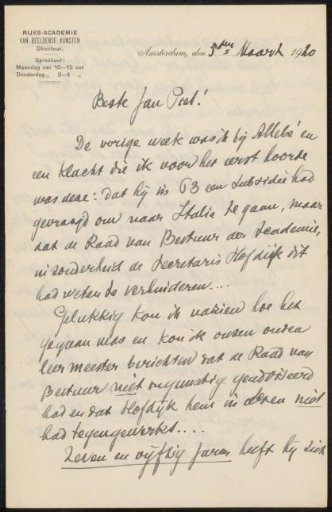 RIJKS-ACADEMIE
VAN BEELDENDE KUNSTEN
Directeur.
Spreekuur:
Maandag van 10–12 uur
Donderdag „ 2–4 „
Amsterdam, den 5den Maart 1920
Beste Jan Piet!
De vorige week was ik bij Allebé en
een klacht die ik voor het eerst hoorde
was deze: dat hij in 63 een subsidie had
gevraagd om naar Italia te gaan, maar
dat de Raad van Bestuur der Academie,
inzonderheid de Secretaris Hofdijk dit
had weten te verhinderen...
Gelukkig kon ik nazien hoe het
gegaan was en kon ik onzen ouden
leermeester berichten dat de Raad van
Bestuur niet ongunstig geadviseerd
had en dat Hofdijk hem in dezen niet
had tegengewerkt....
Zeven en vijftig jaren heeft hij zich